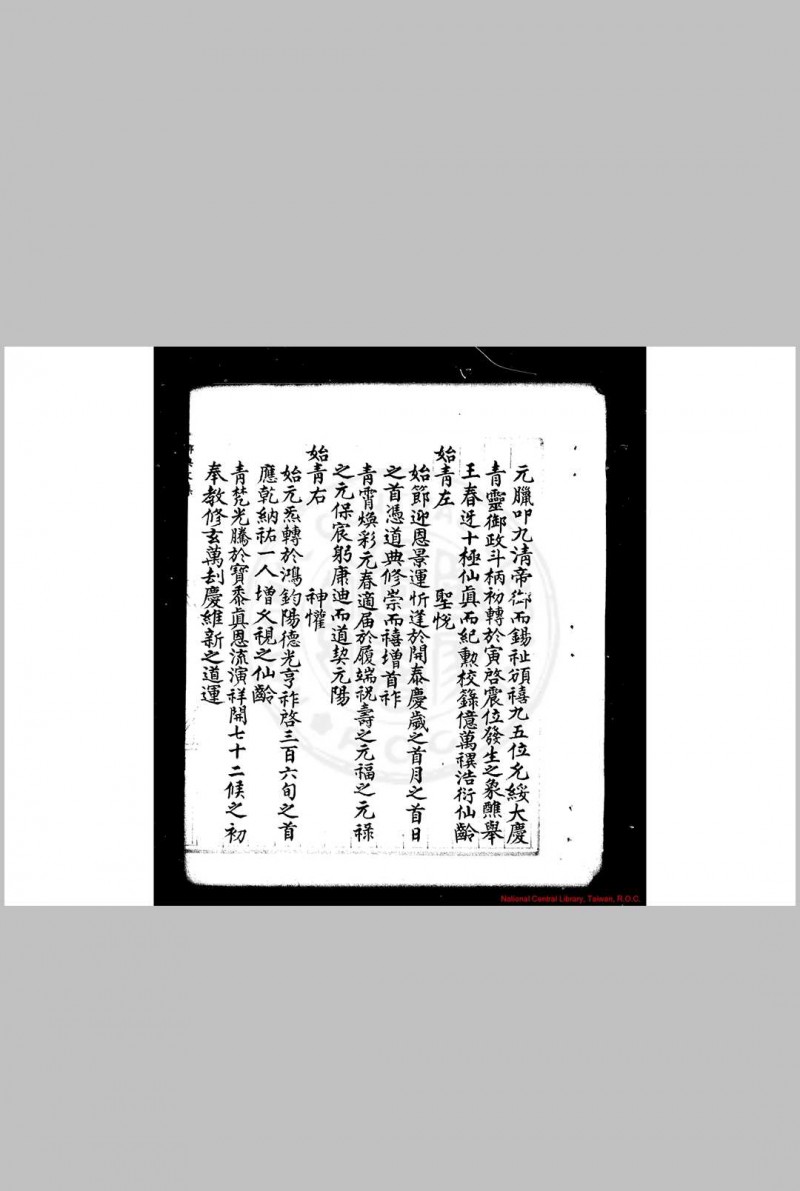 元臘叩九清帝御而錫祉頒禧九五位允綏大慶
青靈御政斗柄初轉於寅啓震位發生之象醮舉
王春迓十極仙眞而紀勲校錄億萬禩浩衍仙齡
始青左　聖悅
始節迎恩景運忻逢於開泰慶歲之首月之首日
之首憑道典修崇而禧增首祚
青霄煥彩元春適届於履端祝壽之元福之元祿
之元保宸躬康迪而道契元陽
始青右　神懽
始元炁轉於鴻鈞陽德光亨祚啓三百六旬之首
應乾納祐一人增久視之仙齡
青梵光騰於寶黍眞恩流演祥開七十二候之初
奉教修玄萬刦慶維新之道運
National Central Library, Taiwan, R.O.C.